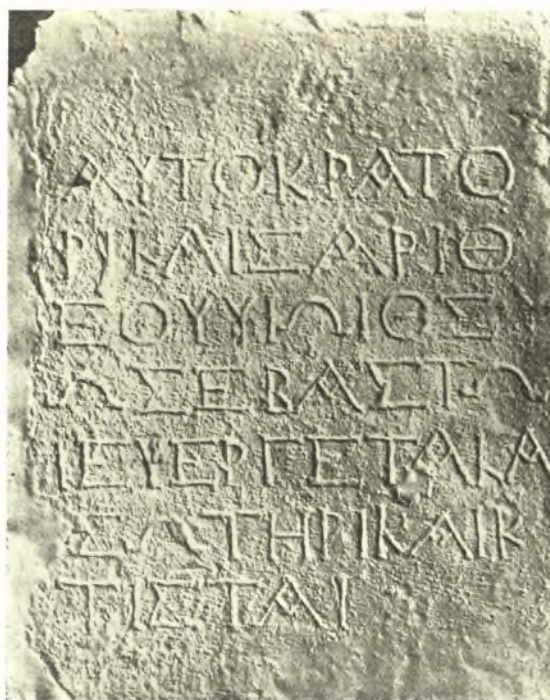 ΑΥΤΟΚΡΑΤΟ
ΡΙΚΑΙΣΑΡΙΘ
ΕΟΥΥΙΩΙΘΕ
ΩΣΕΒΑΣΤΩ
ΙΕΥΕΡΓΕΤΑΙΑ
ΣΩΤΗΡΙΚΑΙΚ
ΤΙΣΤΑΙ